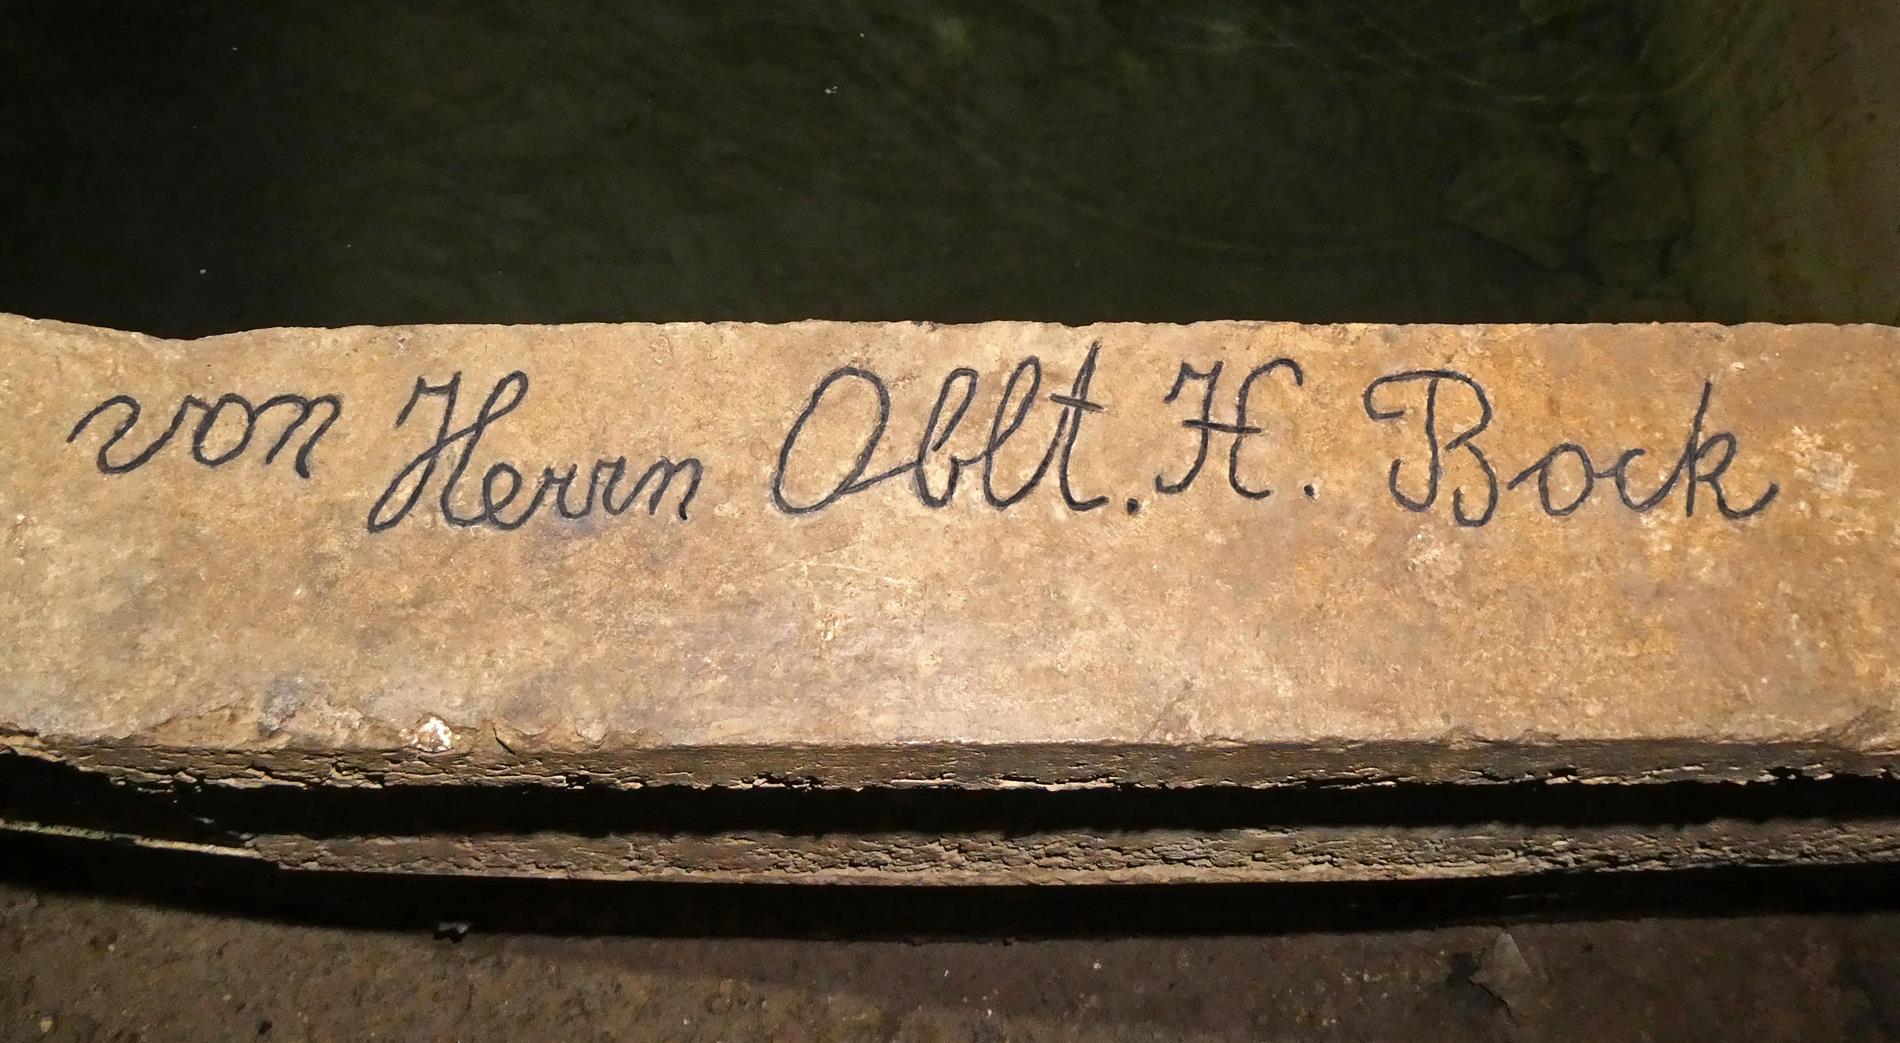 von Herrn Oblt. H. Bock